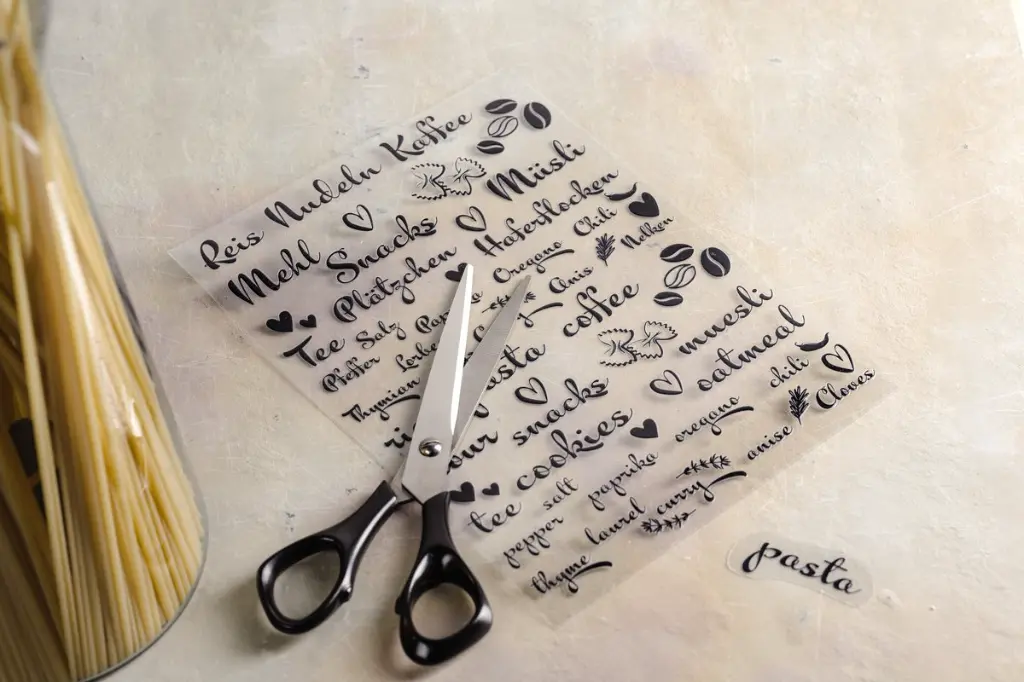 Reis Nudeln Kaffee
Mehl Snacks Müsli
Plätzchen Haferflocken
Tee Salz Oregano Chili
Pfeffer Anis Nelken
Thymian
coffee
snacks muesli
cookies oatmeal
tee salt paprika oregano chili
pepper laurel curry anise Cloves
thyme
pasta